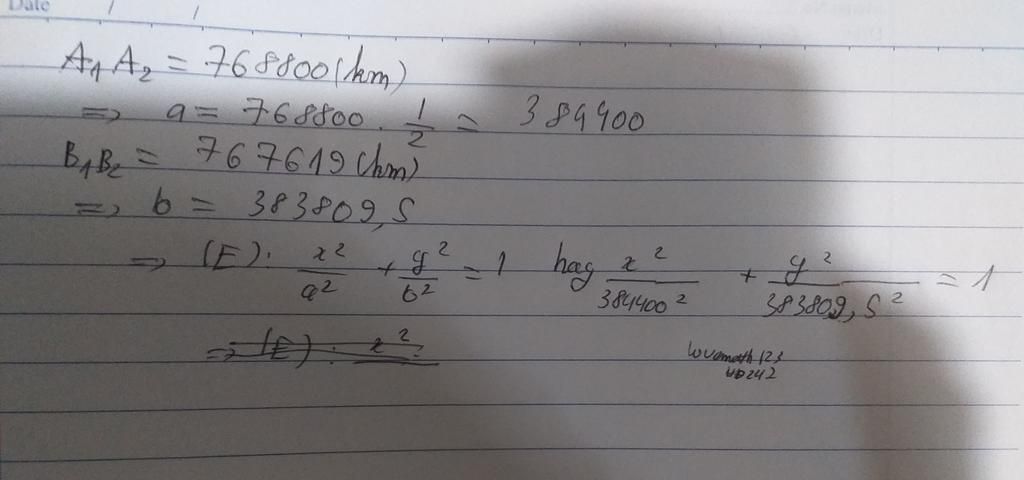 Date / /
A₁A₂ = 768800(km)
=> a = 768800 . 1/2 = 384400
B₁B₂ = 767619(km)
=> b = 383809,5
=> (E): x²/a² + y²/b² = 1 hay x²/384400² + y²/383809,5² = 1
=> (E) : x²